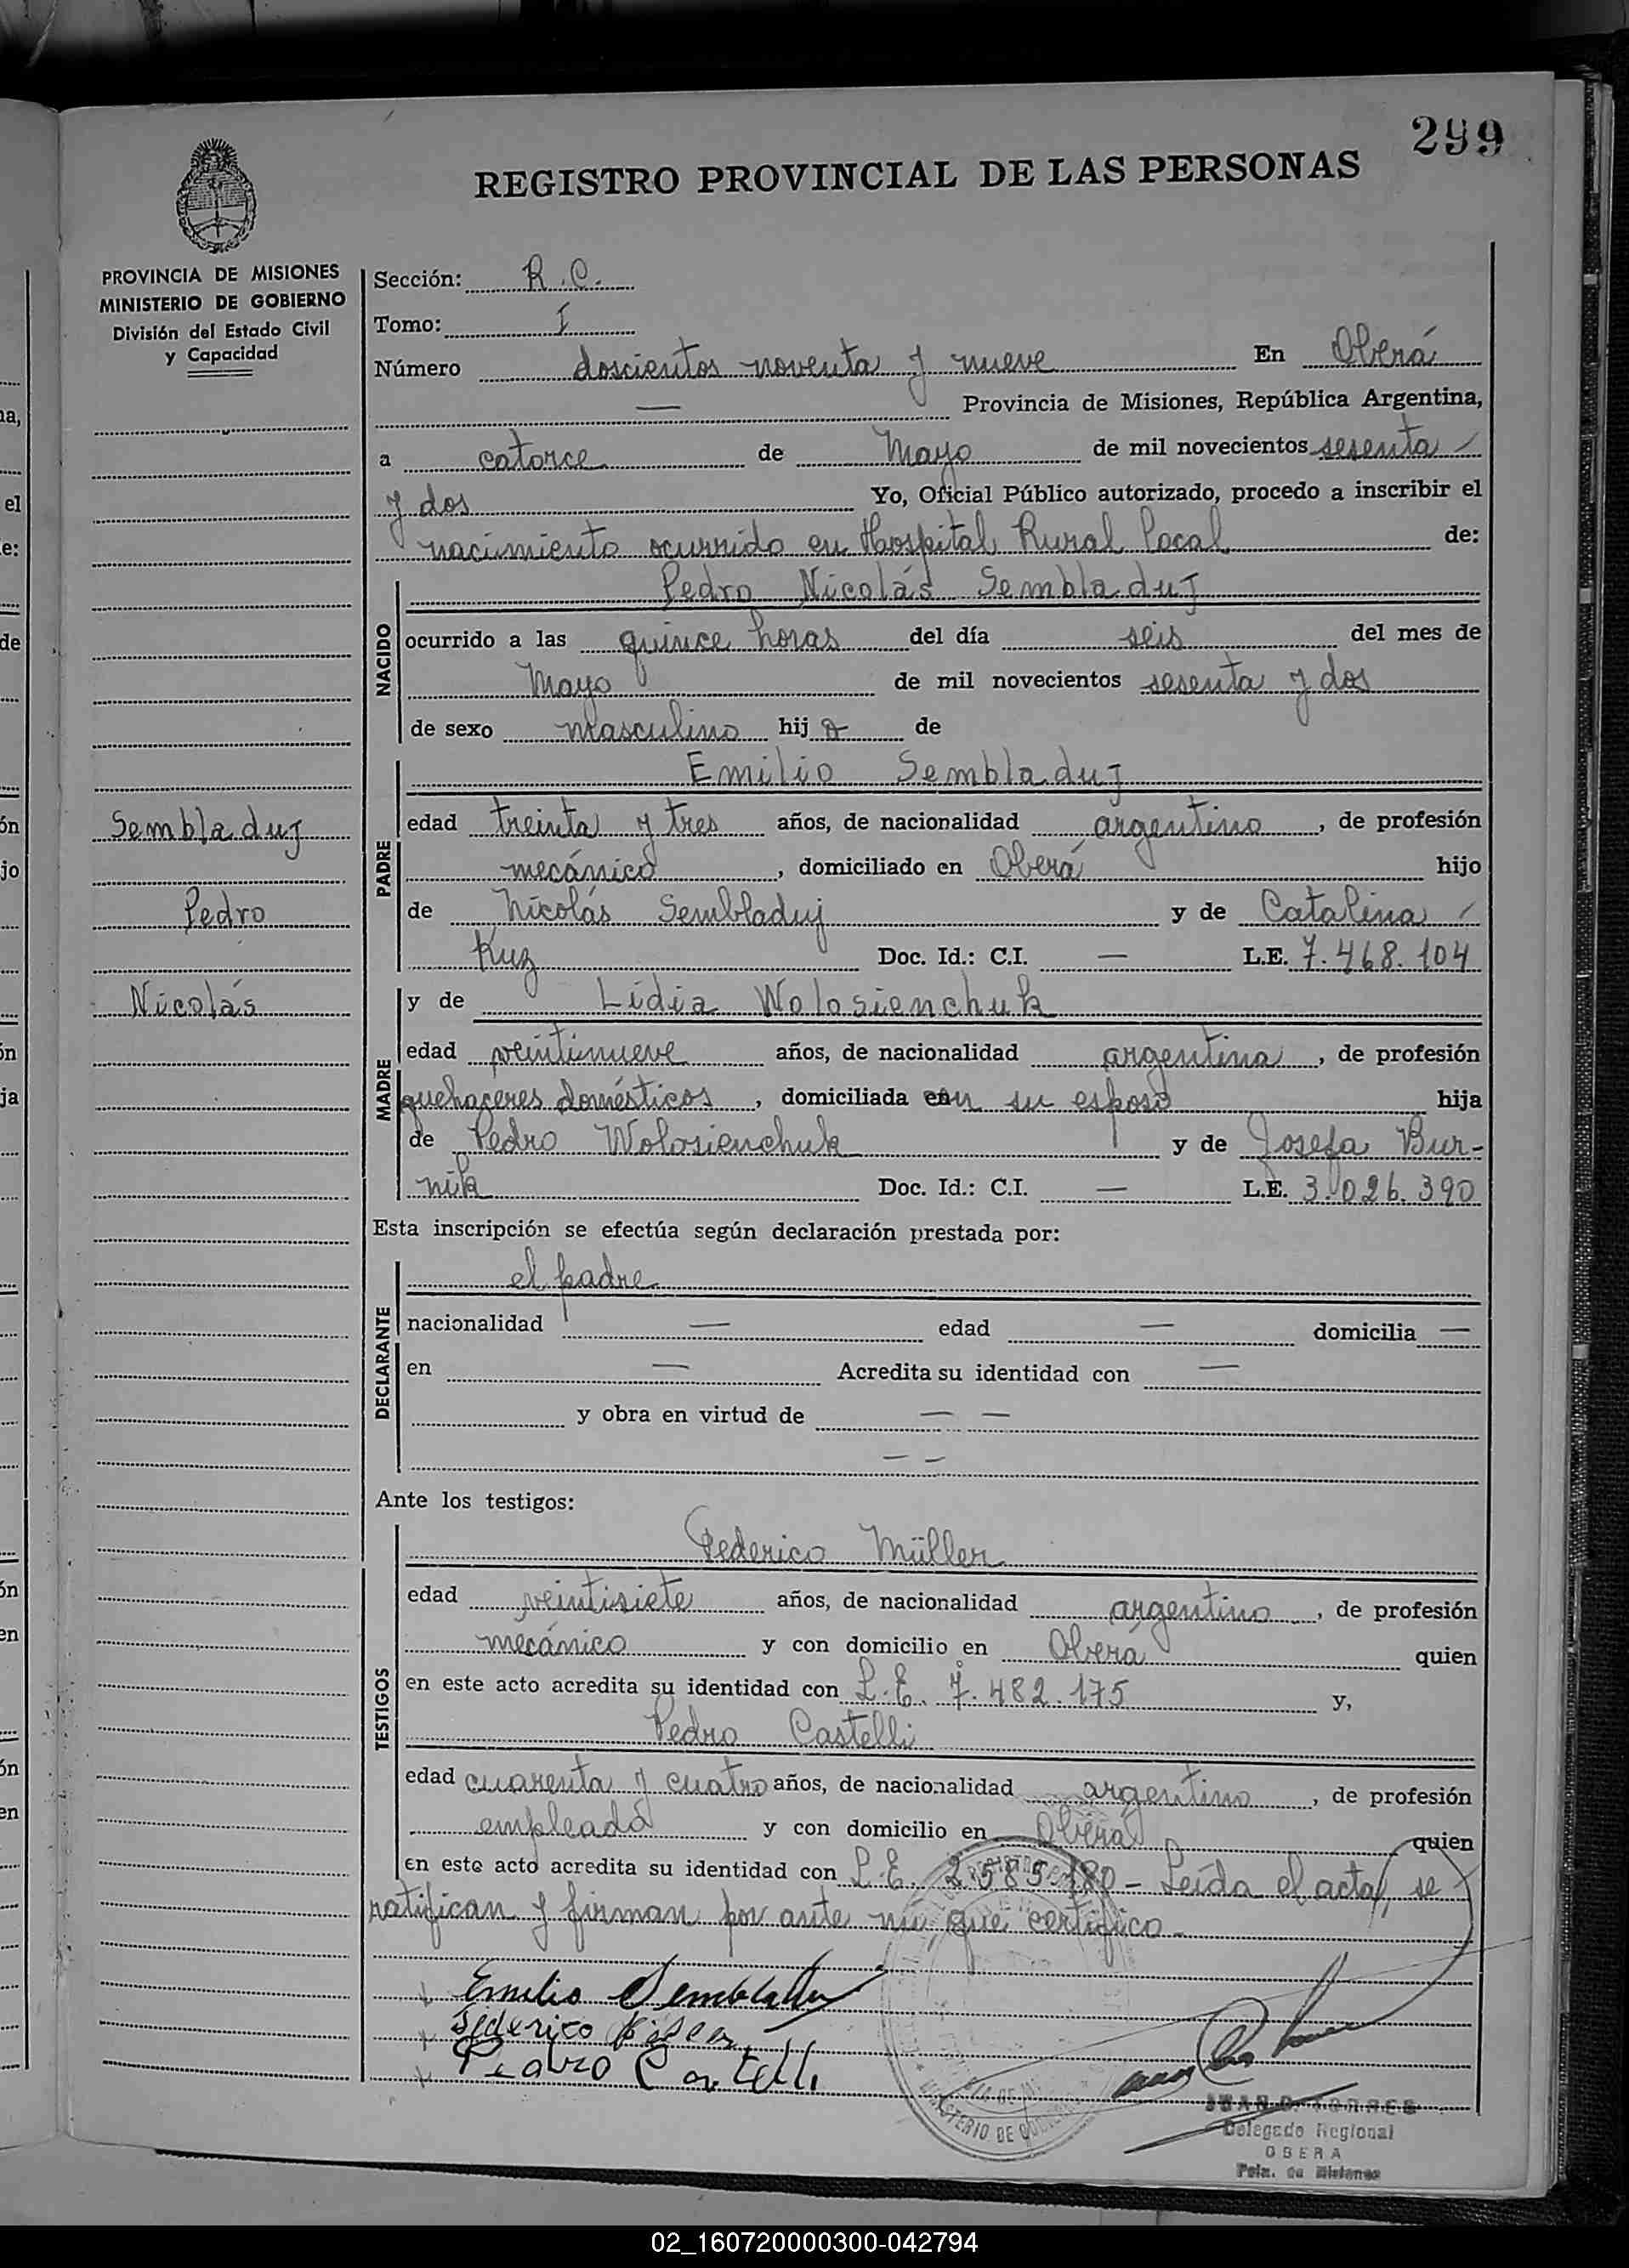 299
REGISTRO PROVINCIAL DE LAS PERSONAS
PROVINCIA DE MISIONES
MINISTERIO DE GOBIERNO
División del Estado Civil
y Capacidad
Sección: R. C.
Tomo: I
Número doscientos noventa y nueve En Oberá
— Provincia de Misiones, República Argentina,
a catorce de Mayo de mil novecientos sesenta
y dos Yo, Oficial Público autorizado, procedo a inscribir el
nacimiento ocurrido en Hospital Rural Local de:
NACIDO
Pedro Nicolás Sembladuj
ocurrido a las quince horas del día seis del mes de
Mayo de mil novecientos sesenta y dos
de sexo masculino hijo de
PADRE
Emilio Sembladuj
Sembladuj
edad treinta y tres años, de nacionalidad argentino, de profesión
mecánico, domiciliado en Oberá hijo
Pedro
de Nicolás Sembladuj y de Catalina
Kuz Doc. Id.: C.I. — L.E. 7.468.104
Nicolás
MADRE
y de Lidia Wolosienchuk
edad veintinueve años, de nacionalidad argentina, de profesión
quehaceres domésticos, domiciliada con su esposo hija
de Pedro Wolosienchuk y de Josefa Bur-
nik Doc. Id.: C.I. — L.E. 3.026.390
Esta inscripción se efectúa según declaración prestada por:
DECLARANTE
el padre
nacionalidad — edad — domicilia —
en — Acredita su identidad con —
y obra en virtud de — —
— —
Ante los testigos:
TESTIGOS
Federico Müller
edad veintisiete años, de nacionalidad argentino, de profesión
mecánico y con domicilio en Oberá quien
en este acto acredita su identidad con L.E. 7.482.175 y,
Pedro Castelli
edad cuarenta y cuatro años, de nacionalidad argentino, de profesión
empleado y con domicilio en Oberá quien
en este acto acredita su identidad con L.E. 2.585.180 - Leída el acta, se
ratifican y firman por ante mí, que certifico -
Emilio Sembladuj
Federico
Pedro Castelli
MINISTERIO DE
JUAN TORRES
Delegado Regional
OBERA
Pcia. de Misiones
02_160720000300-042794